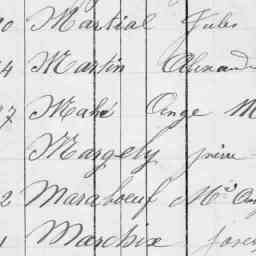 0 Martial Jules
4 Martin Alexand
7 Mahé Ange M
Margely pierre
2 Maraboeuf Mie Ang
1 Marchix josep